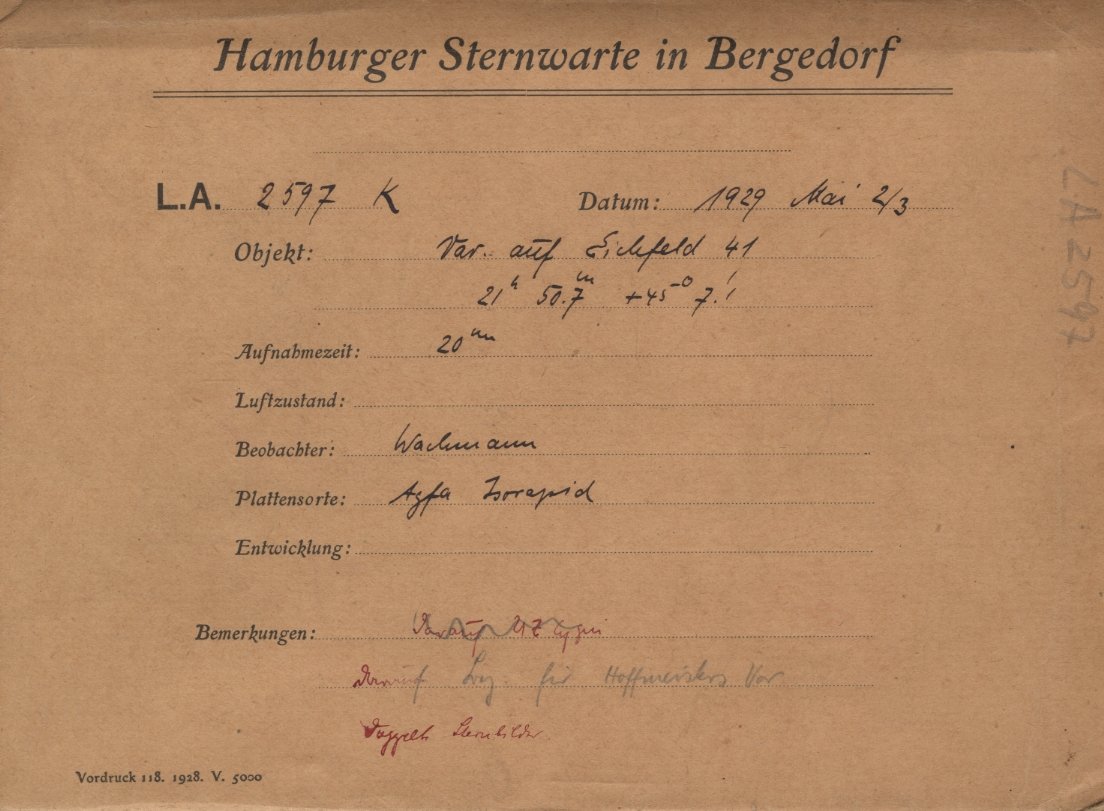 Hamburger Sternwarte in Bergedorf
L.A. 2597 K
Datum: 1929 Mai 2/3
Objekt: Var. auf Eichfeld 41
21h 50.7m +45° 7.'
Aufnahmezeit: 20m
Luftzustand:
Beobachter: Wachmann
Plattensorte: Agfa Isorapid
Entwicklung:
Bemerkungen: Darauf UZ Cygni
Darauf für Hoffmeisters Var
Doppelte Sternbilder
Vordruck 118. 1928. V. 5000
LA 2597